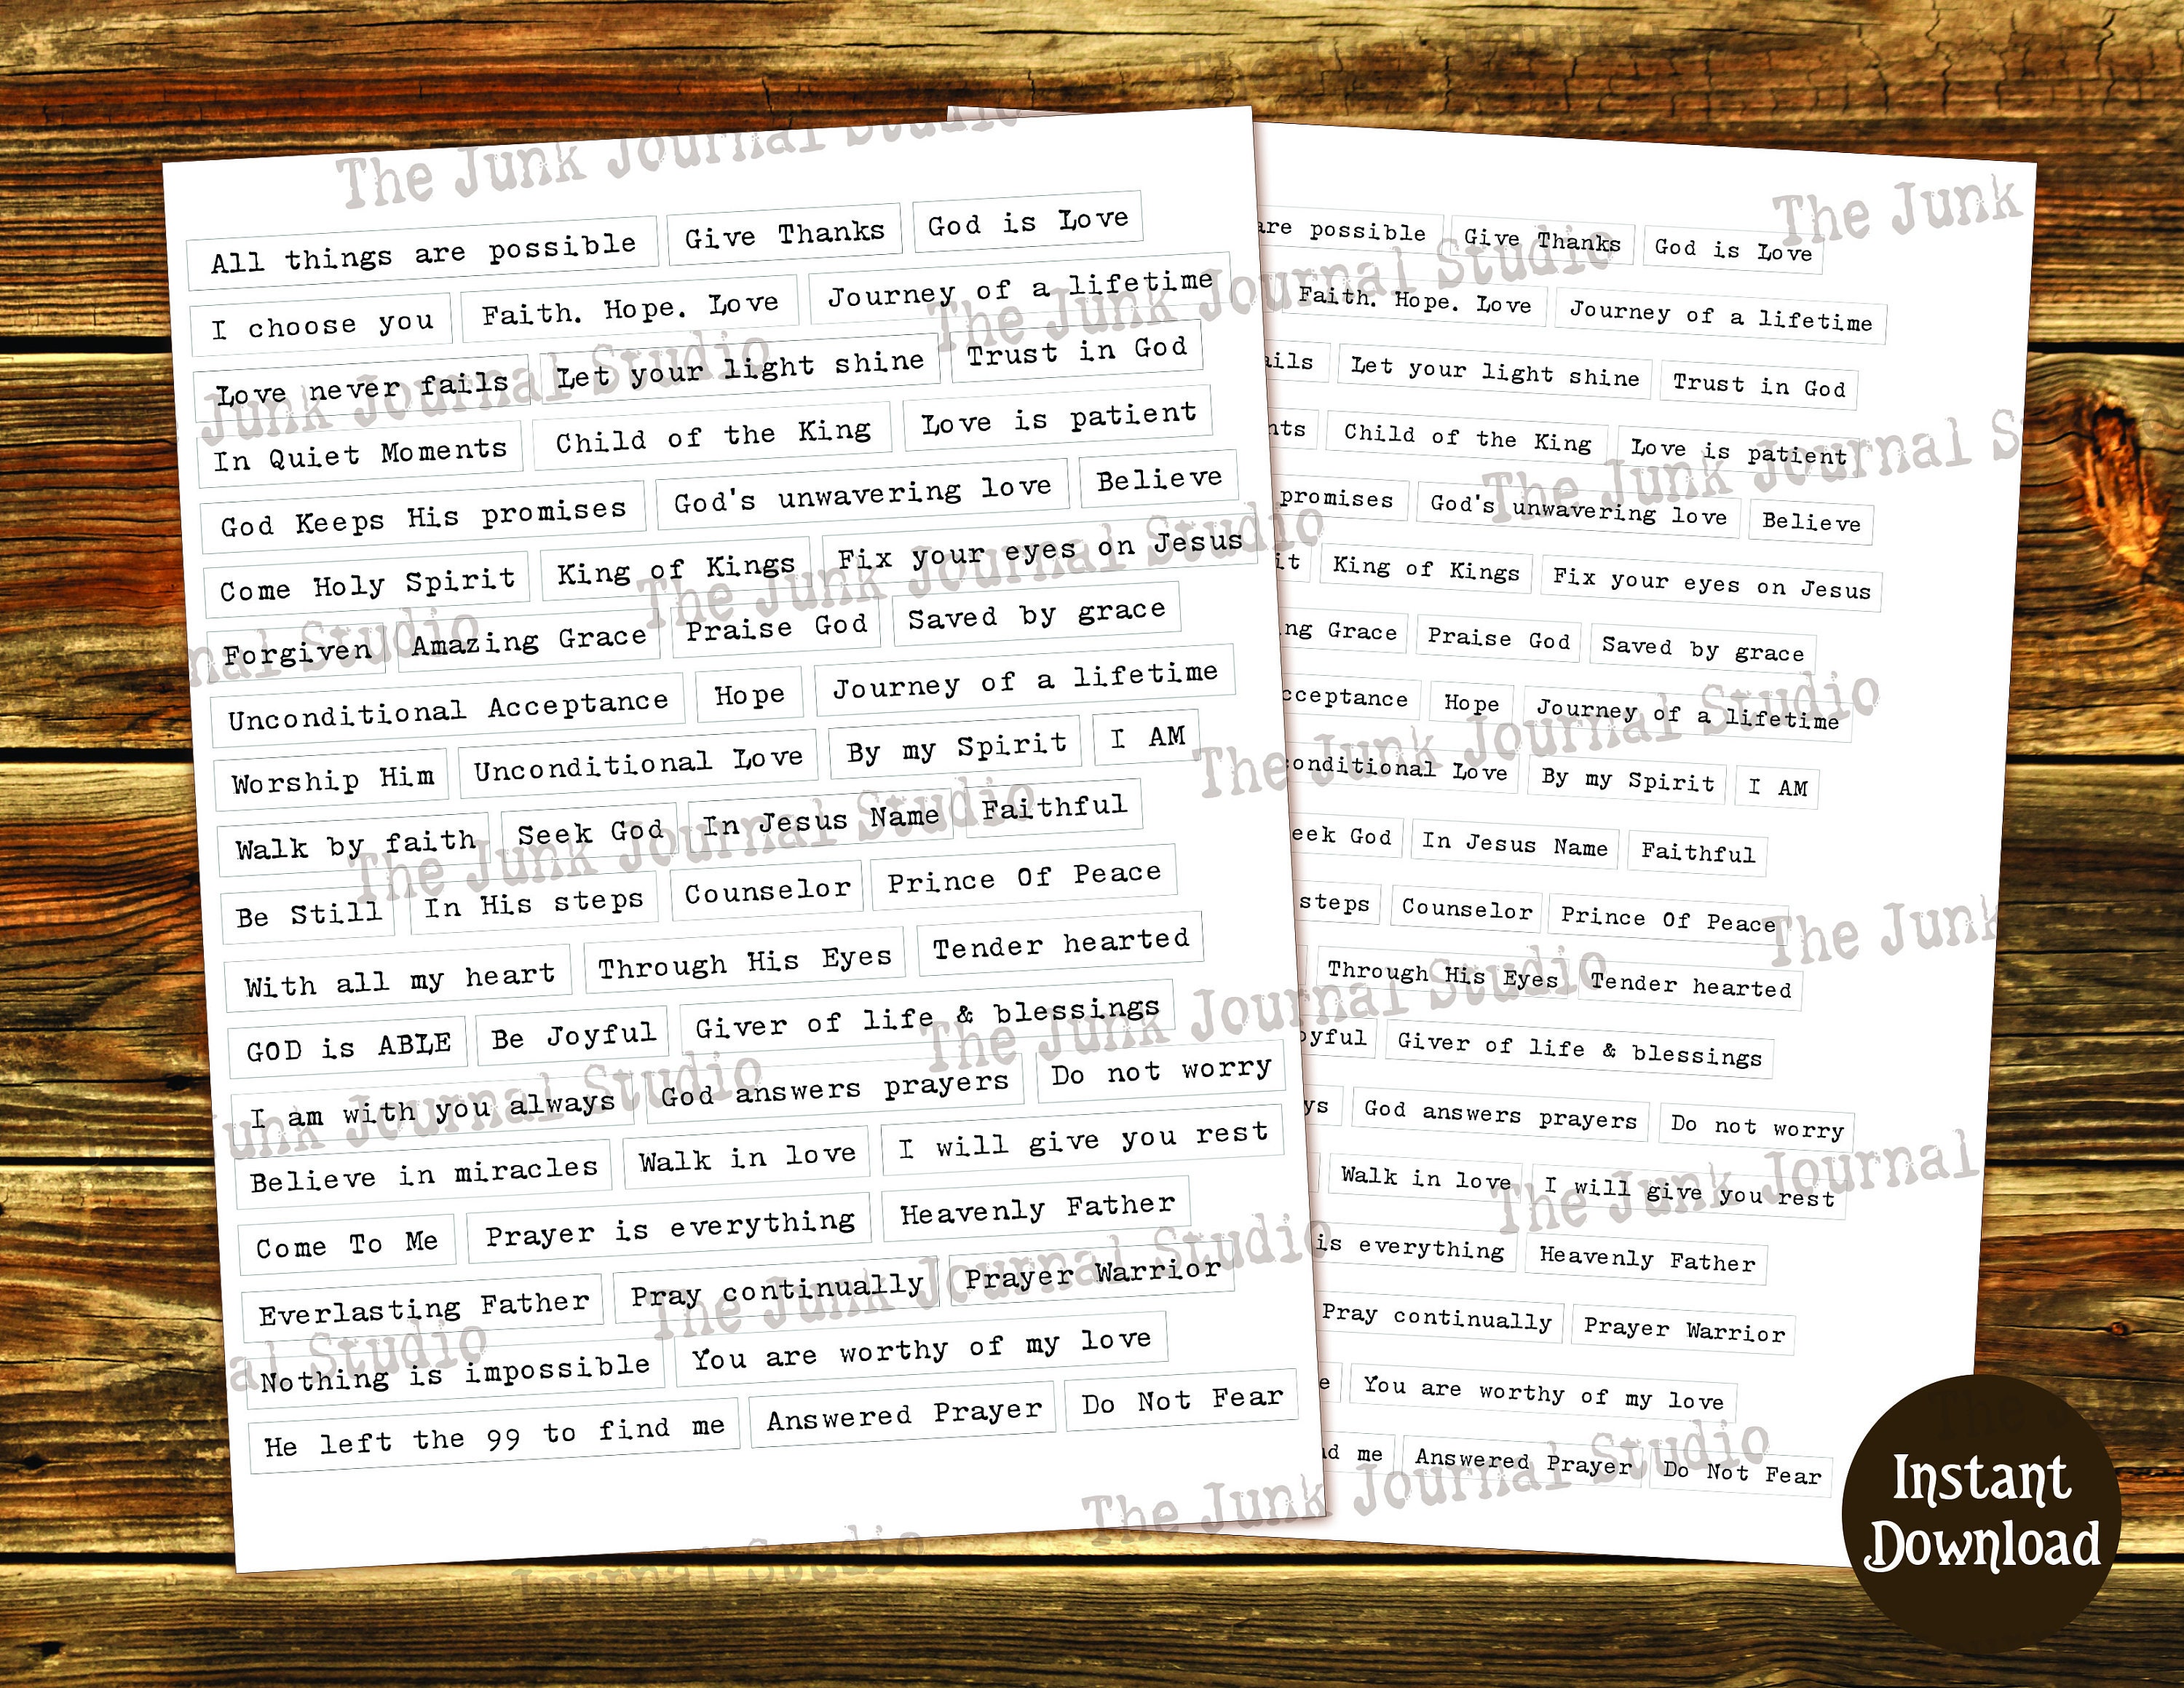 The Junk Journal Studio
All things are possible Give Thanks God is Love
I choose you Faith. Hope. Love Journey of a lifetime
Love never fails Let your light shine Trust in God
In Quiet Moments Child of the King Love is patient
God Keeps His promises God's unwavering love Believe
Come Holy Spirit King of Kings Fix your eyes on Jesus
Forgiven Amazing Grace Praise God Saved by grace
Unconditional Acceptance Hope Journey of a lifetime
Worship Him Unconditional Love By my Spirit I AM
Walk by faith Seek God In Jesus Name Faithful
Be Still In His steps Counselor Prince Of Peace
With all my heart Through His Eyes Tender hearted
GOD is ABLE Be Joyful Giver of life & blessings
I am with you always God answers prayers Do not worry
Believe in miracles Walk in love I will give you rest
Come To Me Prayer is everything Heavenly Father
Everlasting Father Pray continually Prayer Warrior
Nothing is impossible You are worthy of my love
He left the 99 to find me Answered Prayer Do Not Fear
The Junk Journal Studio
The Junk
are possible Give Thanks God is Love
Faith. Hope. Love Journey of a lifetime
ails Let your light shine Trust in God
nts Child of the King Love is patient
promises God's unwavering love Believe
it King of Kings Fix your eyes on Jesus
ng Grace Praise God Saved by grace
cceptance Hope Journey of a lifetime
onditional Love By my Spirit I AM
eek God In Jesus Name Faithful
steps Counselor Prince Of Peace
Through His Eyes Tender hearted
oyful Giver of life & blessings
ys God answers prayers Do not worry
Walk in love I will give you rest
is everything Heavenly Father
Pray continually Prayer Warrior
e You are worthy of my love
nd me Answered Prayer Do Not Fear
Instant
Download